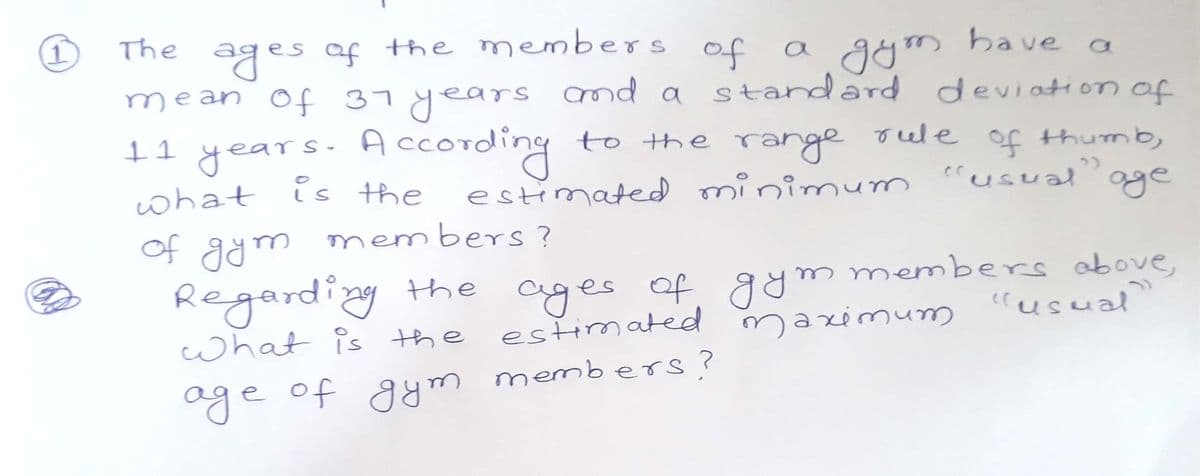 ① The ages of the members of a gym have a
mean of 37 years and a standard deviation of
11 years. According to the range rule of thumb,
what is the estimated minimum "usual" age
of gym members?
Regarding the ages of gym members above,
What is the estimated maximum "usual"
age of gym members?